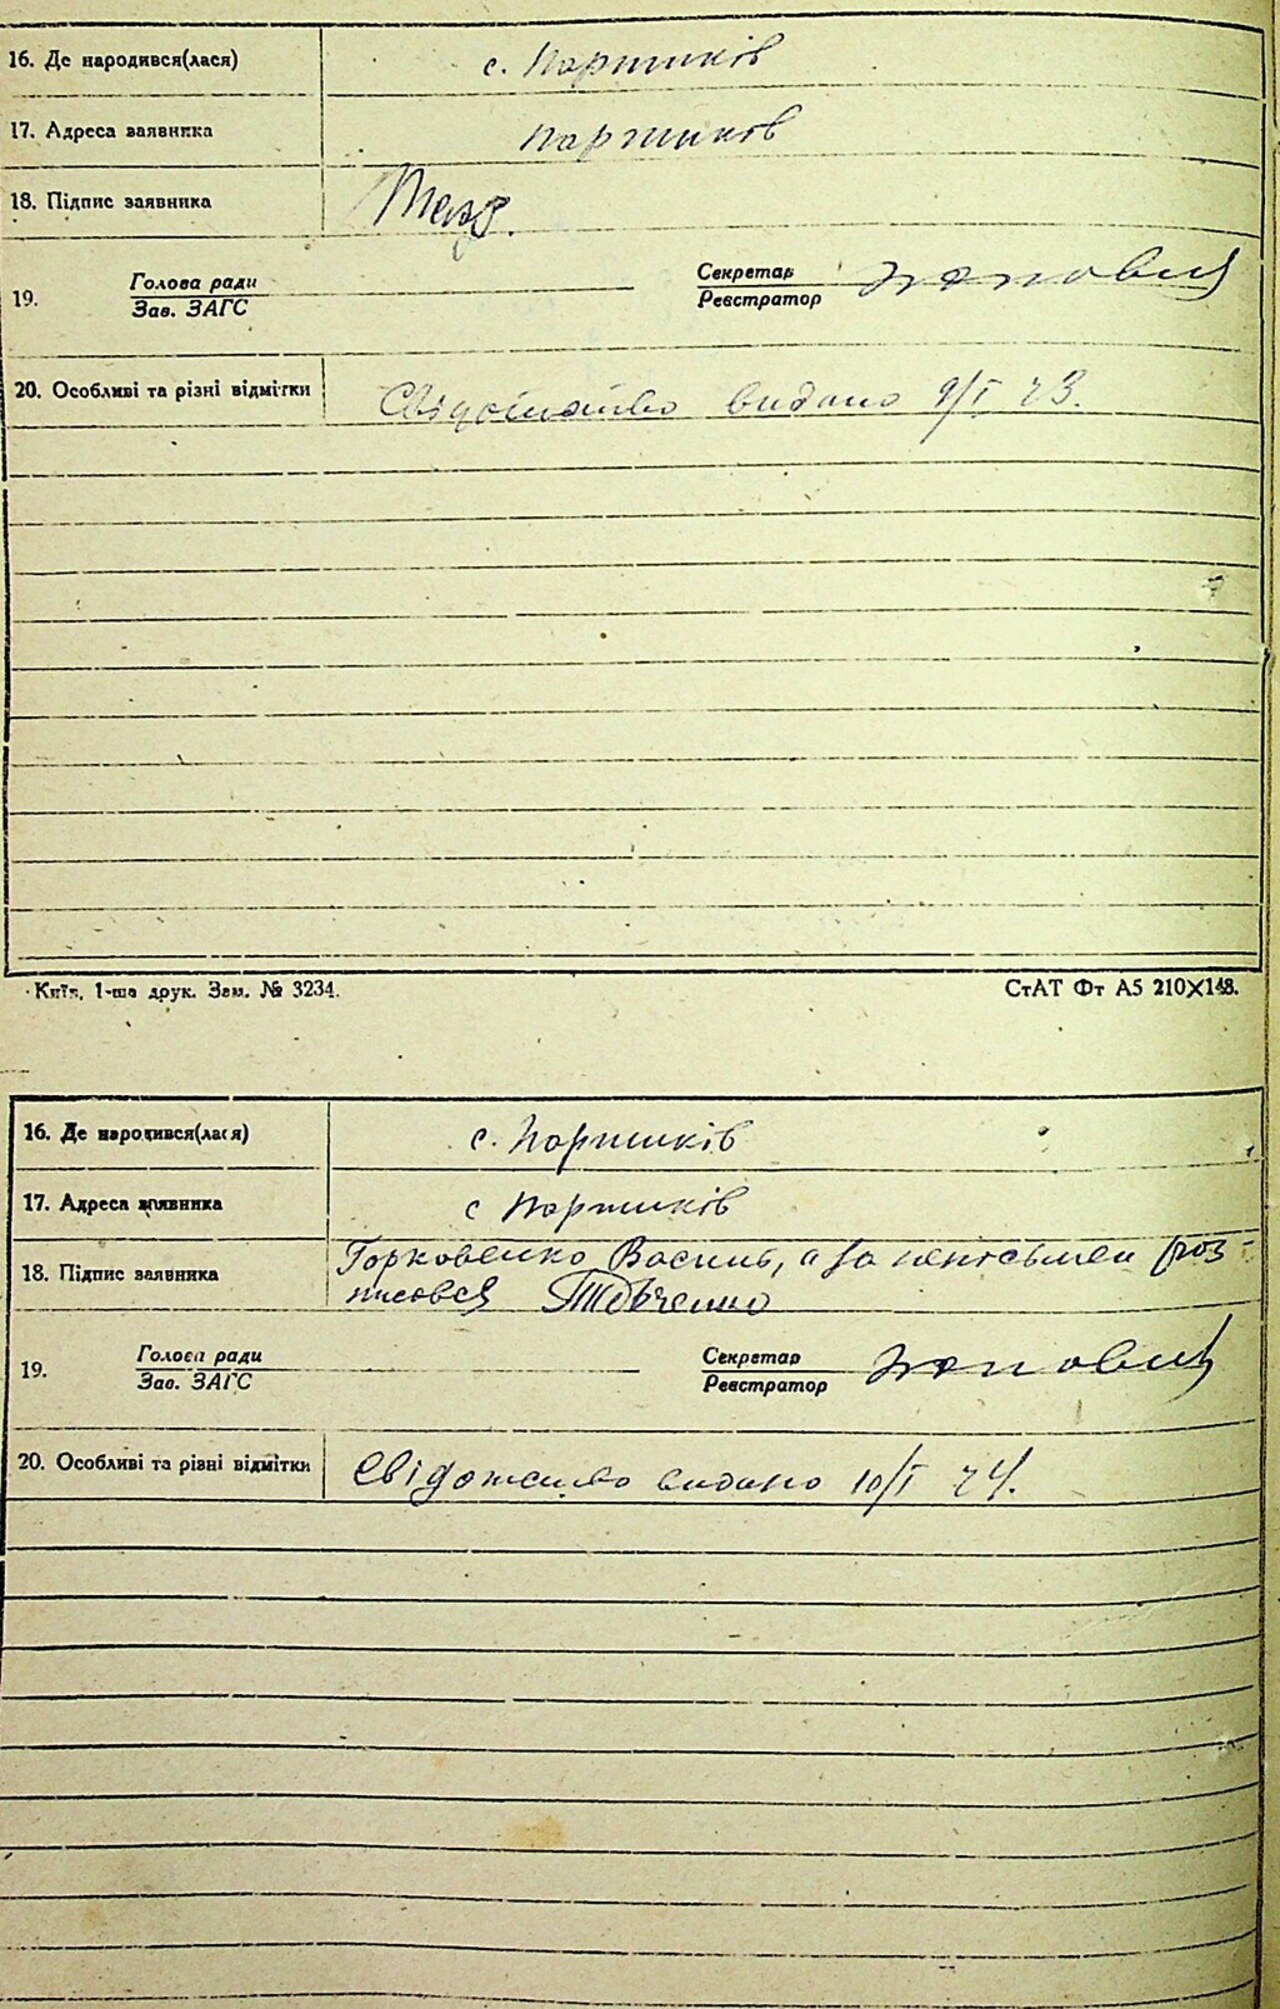 16. Де народився(лася) с. Паришків
17. Адреса заявника Паришків
18. Підпис заявника
Голова ради Секретар Попович
19.
Зав. ЗАГС Реєстратор
20. Особливі та різні відмітки Свідоцтво видано 9/I 23.
Київ, 1-ша друк. Зам. № 3234. СтАТ Фт А5 210×148.
16. Де народився(лася) с. Паришків
17. Адреса заявника с Паришків
18. Підпис заявника Горковенко Василь, а за неписьмен роз-
писався
Голова ради Секретар Попович
19.
Зав. ЗАГС Реєстратор
20. Особливі та різні відмітки Свідоцтво видано 10/I 24.